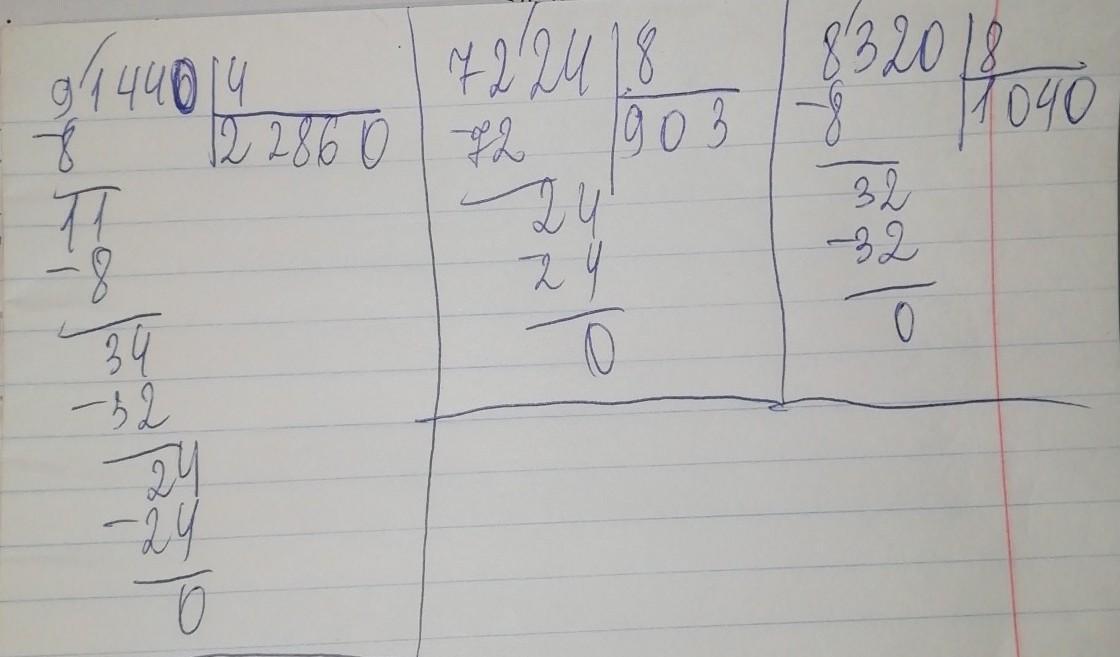 91440 4
-8 22860
11
-8
34
-32
24
-24
0
7224 8
-72 903
24
-24
0
8320 8
-8 1040
32
-32
0